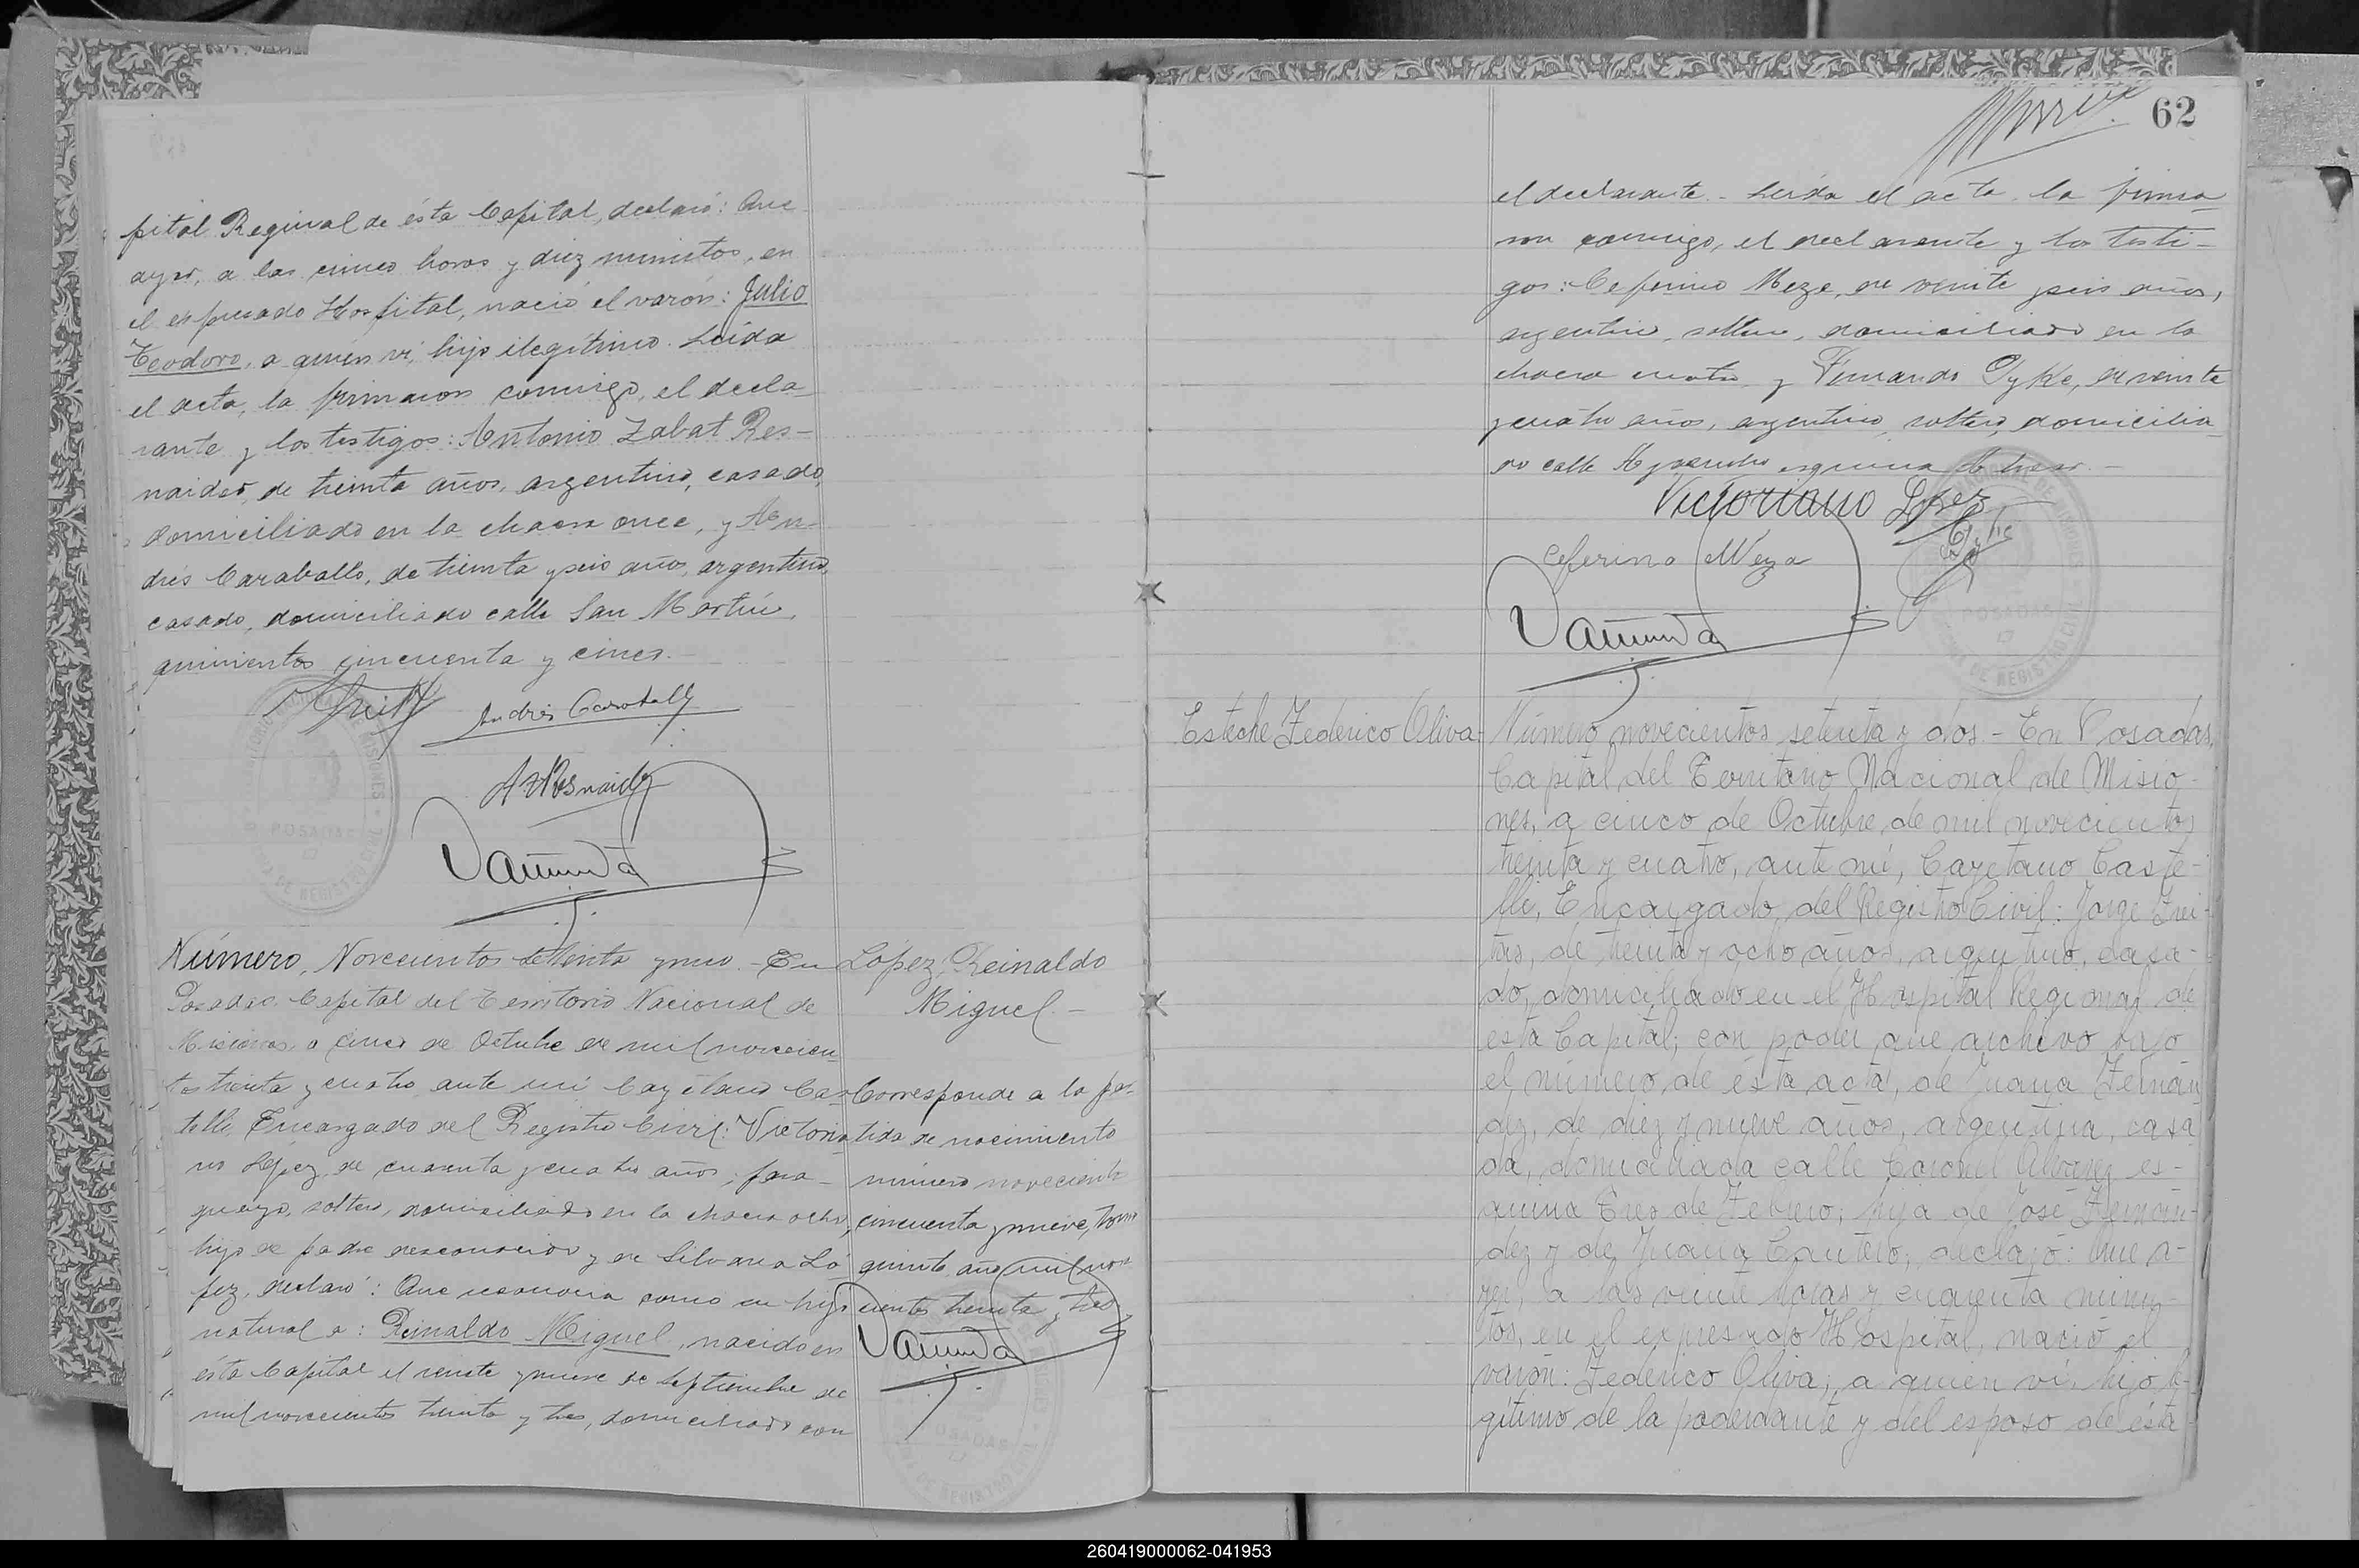 pital Reginal de ésta Capital, declaró: Que
ayer, a las cinco horas y diez minutos, en
el expresado Hospital, nació el varón: Julio
Teodoro, a quien ví, hijo ilegítimo. Leída
el acta, la firmaron conmigo, el decla-
rante y los testigos: Antonio Zabat Res-
naider, de treinta años, argentino, casado,
domiciliado en la chacra once, y An-
drés Caraballo, de treinta y seis años, argentino,
casado, domiciliado calle San Martín,
quinientos cincuenta y cinco.-
Andrés Caraballo
POSADAS
Número, Novecientos setenta y uno.- En
Posadas, Capital del Territorio Nacional de
Misiones, a cinco de Octubre de mil novecien
tos treinta y cuatro, ante mí Cayetano Cas-
telli, Encargado del Registro Civil: Victoria
no López, de cuarenta y cuatro años, para-
guayo, soltero, domiciliado en la chacra ocho,
hijo de padre desconocido y de Silvana Ló
pez, declaró: Que reconocía como su hijo
natural a: Reinaldo Miguel, nacido en
ésta Capital el veinte y nueve de Septiembre de
mil novecientos treinta y tres, domiciliado con
López, Reinaldo
Miguel.-
Corresponde a la par-
tida de nacimiento
número novecientos
cincuenta y nueve, tomo
quinto, año mil nove
cientos treinta y tres
62
el declarante.- Leída el acta, la firma-
ron conmigo, el declarante y los testi-
gos: Ceferino Meza, de veinte y seis años,
argentino, soltero, domiciliado en la
chacra cuatro y Fernando Dyke, de veinte
y cuatro años, argentino, soltero, domicilia
do calle Ayacucho esquina
Victoriano López
Ceferino Meza
POSADAS
Esteche Federico Oliva-
Número novecientos setenta y dos - En Posadas,
Capital del Territorio Nacional de Misio-
nes, a cinco de Octubre de mil novecientos
treinta y cuatro, ante mí, Cayetano Caste-
lli, Encargado del Registro Civil: Jorge Frei-
tas, de treinta y ocho años, argentino, casa-
do, domiciliado en el Hospital Regional de
esta Capital; con poder que archivo bajo
el número de ésta acta, de Juana Fernán
dez, de diez y nueve años, argentina, casa
da, domiciliada calle Coronel Alvarez es-
quina Tres de Febrero; hija de José Fernán-
dez y de Juana Cantero; declaró: Que a-
yer, a las veinte horas y cincuenta minu-
tos, en el expresado Hospital, nació el
varón: Federico Oliva, a quien ví, hijo le-
gítimo de la poderdante y del esposo de ésta
260419000062-041953